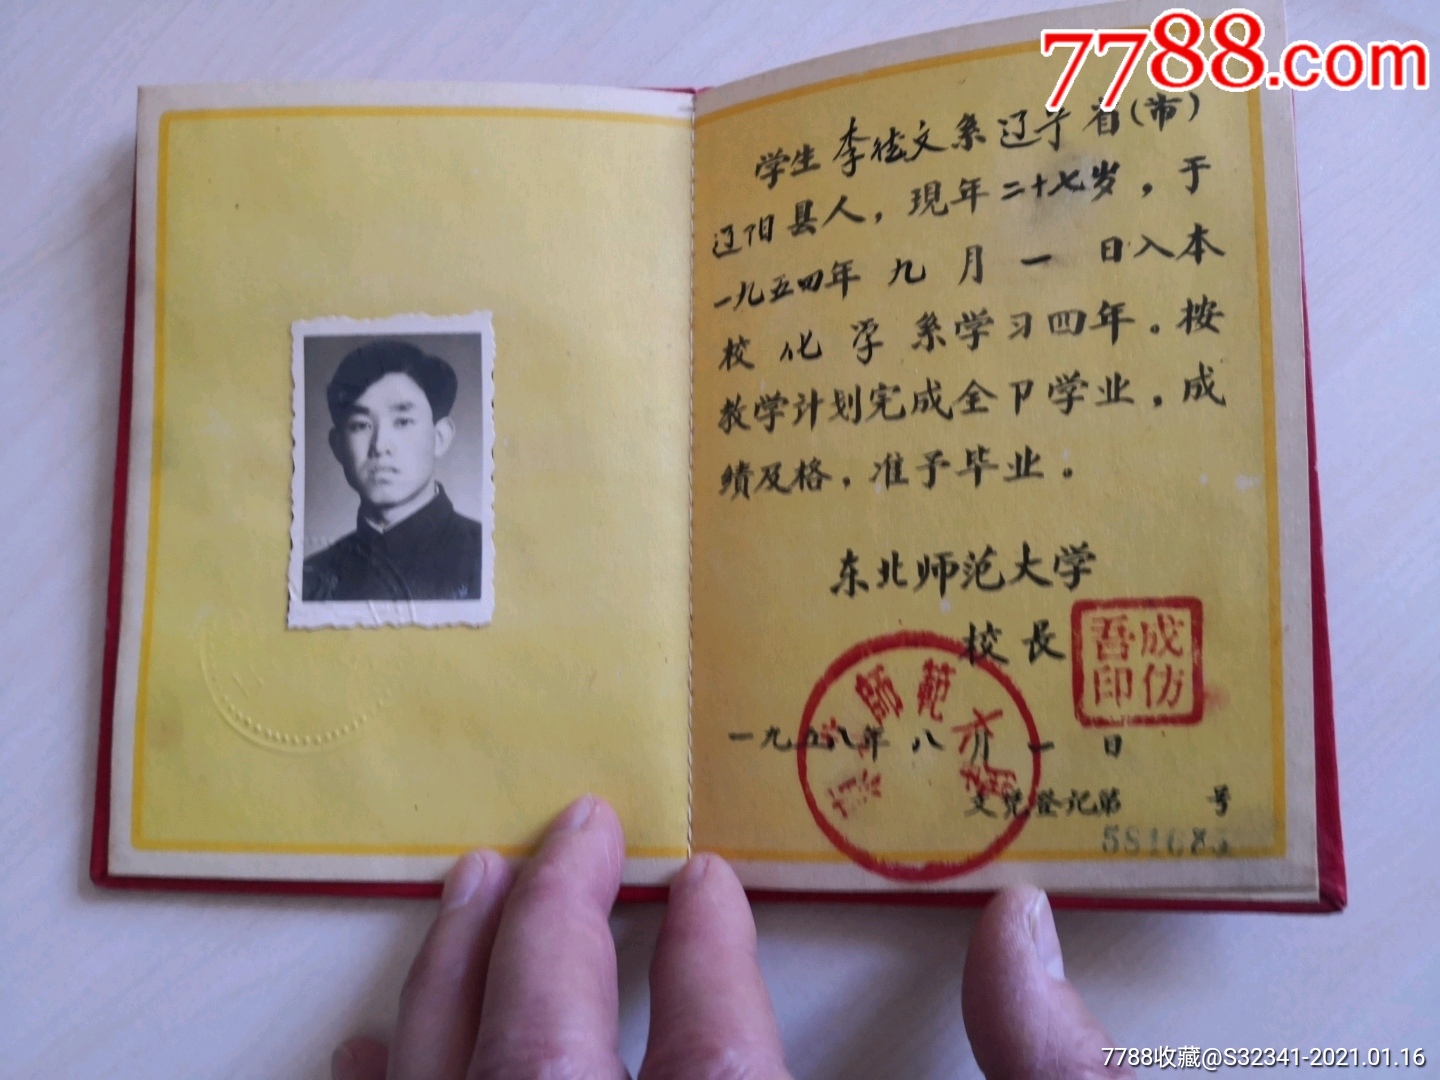 7788.com
学生李德文系辽宁省(市)
辽阳县人，現年二十七岁，于
一九五四年九月一日入本
校化学系学习四年。按
教学计划完成全卩学业，成
绩及格，准予毕业。
东北师范大学
校長
成仿
吾印
師範大
一九五八年八月一日
文凭登记第 号
7788收藏@S32341-2021.01.16